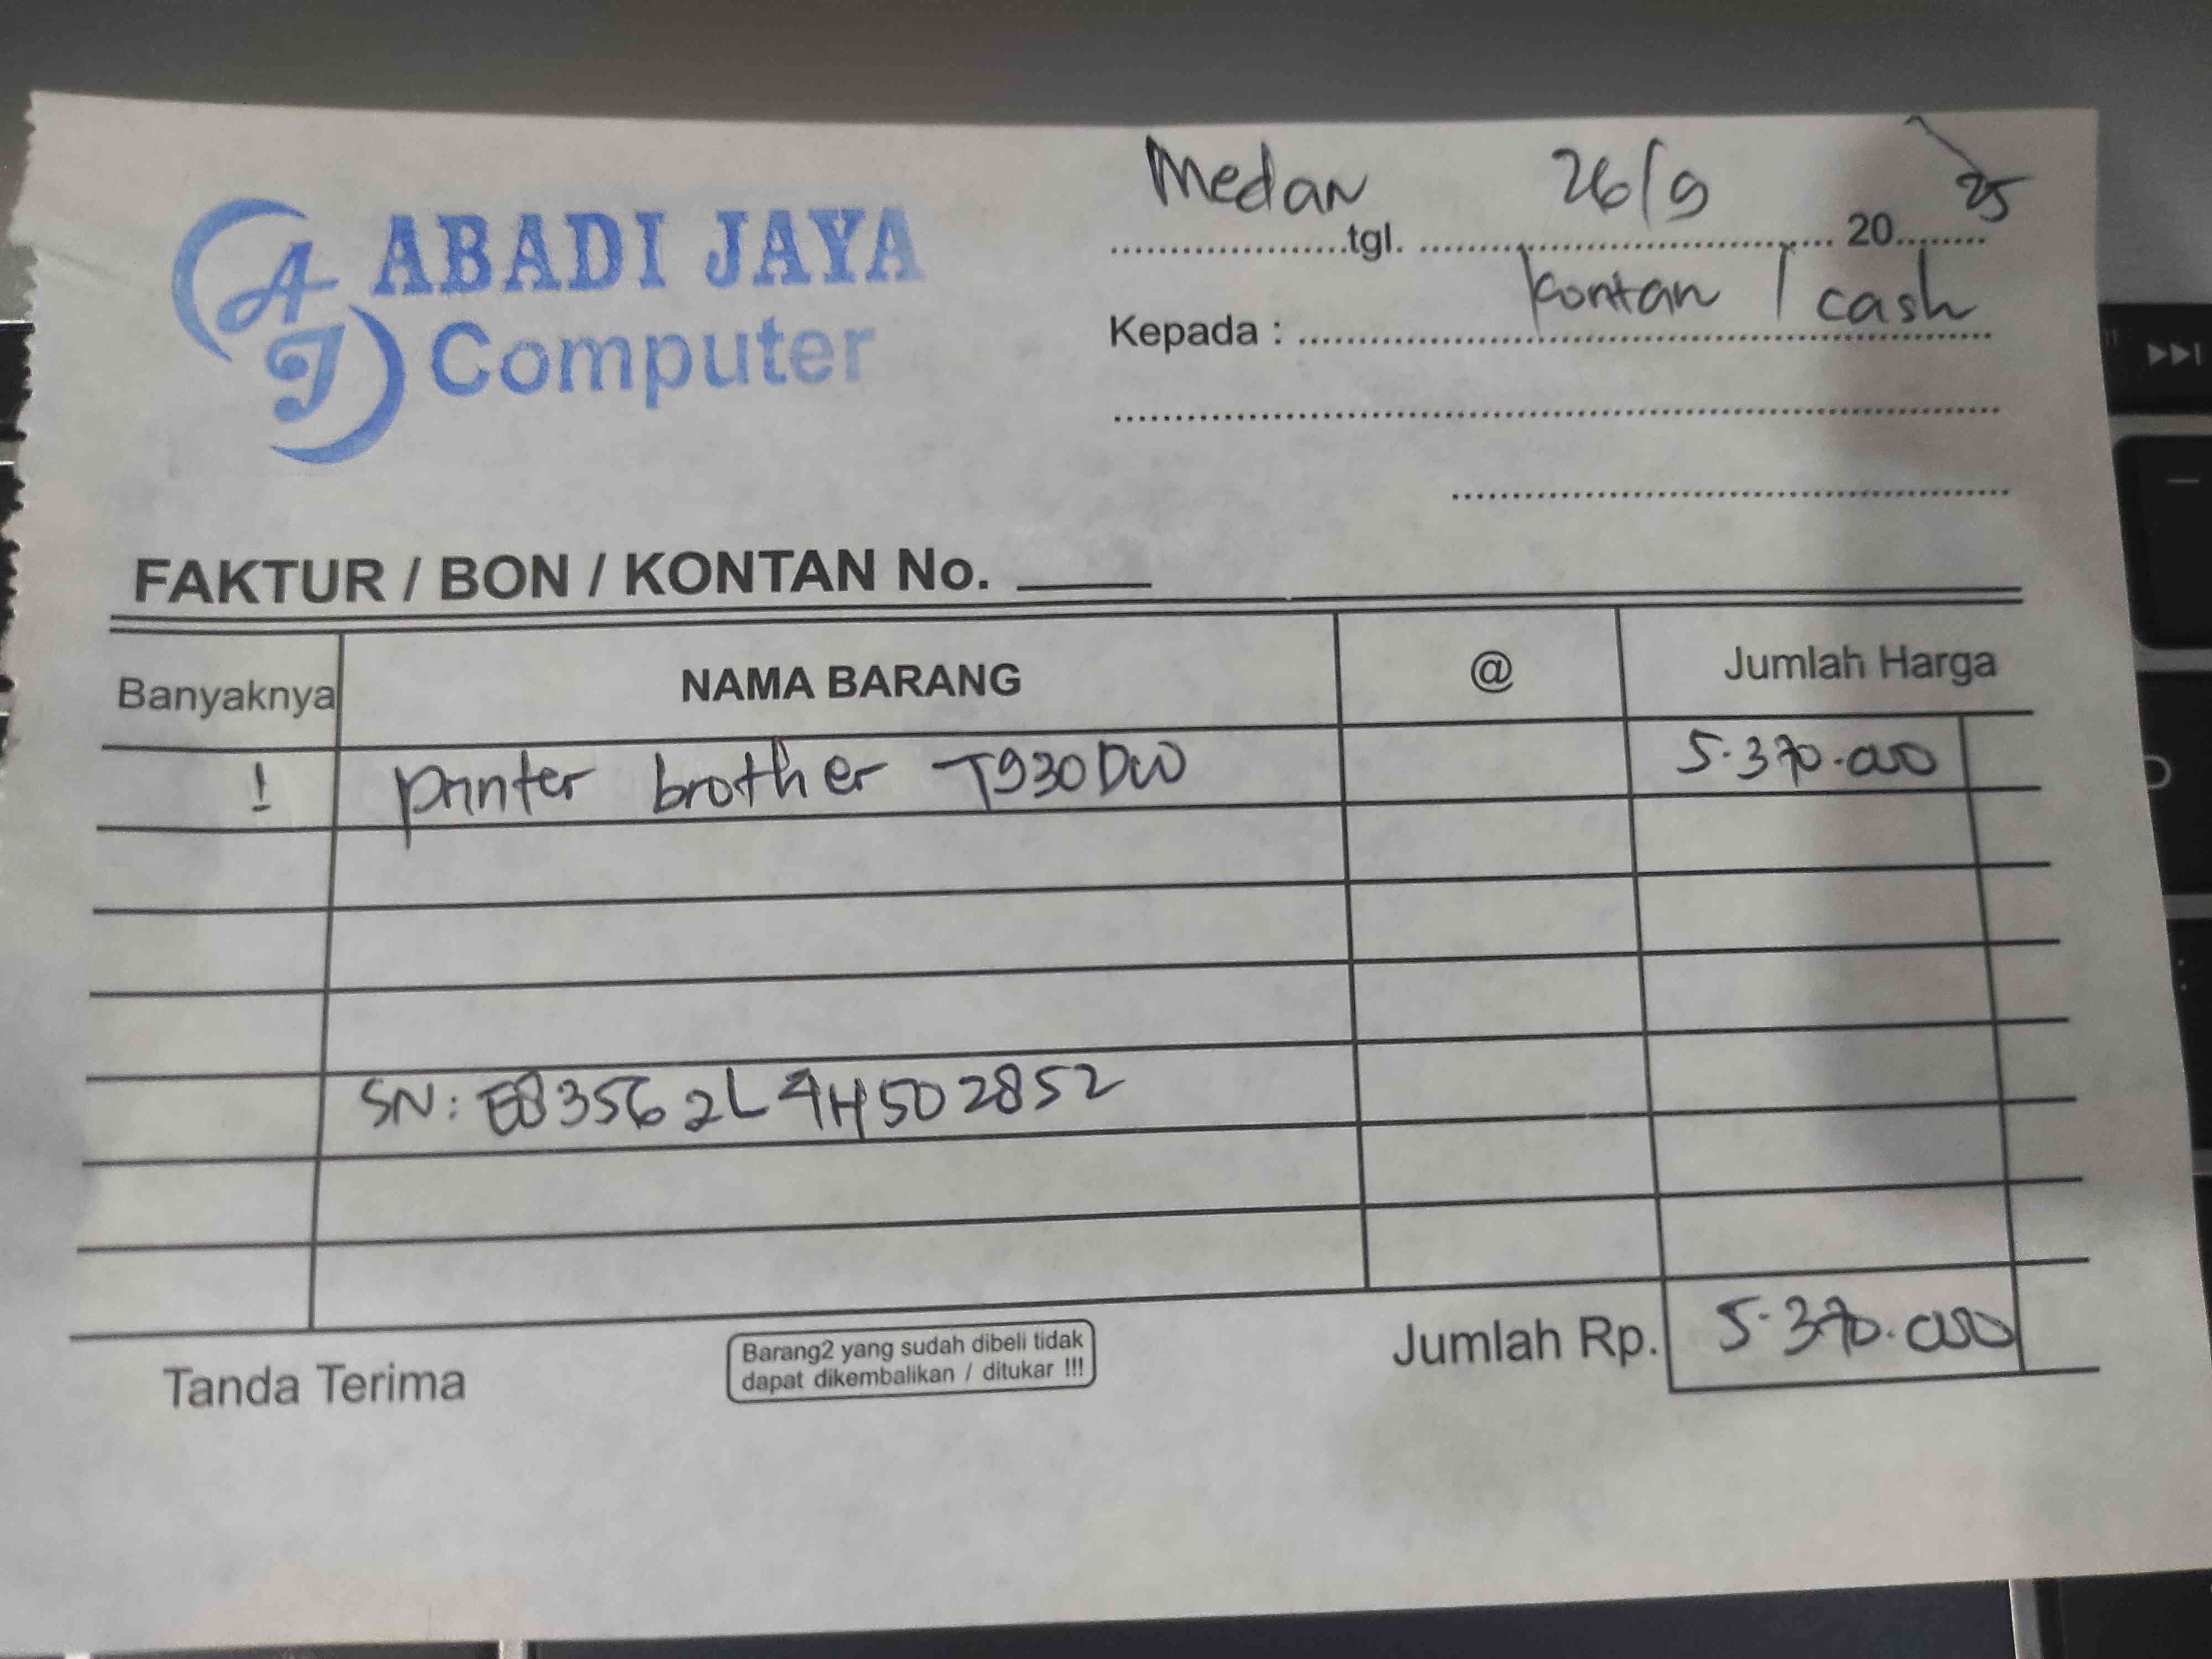 AJ ABADI JAYA
Computer
Medan tgl. 26/9 2025
Kepada : Kontan / cash
FAKTUR / BON / KONTAN No.
Banyaknya NAMA BARANG @ Jumlah Harga
1 printer brother T930DW 5.370.000
SN: E83562L4H502852
Tanda Terima
Barang2 yang sudah dibeli tidak
dapat dikembalikan / ditukar !!!
Jumlah Rp. 5.370.000